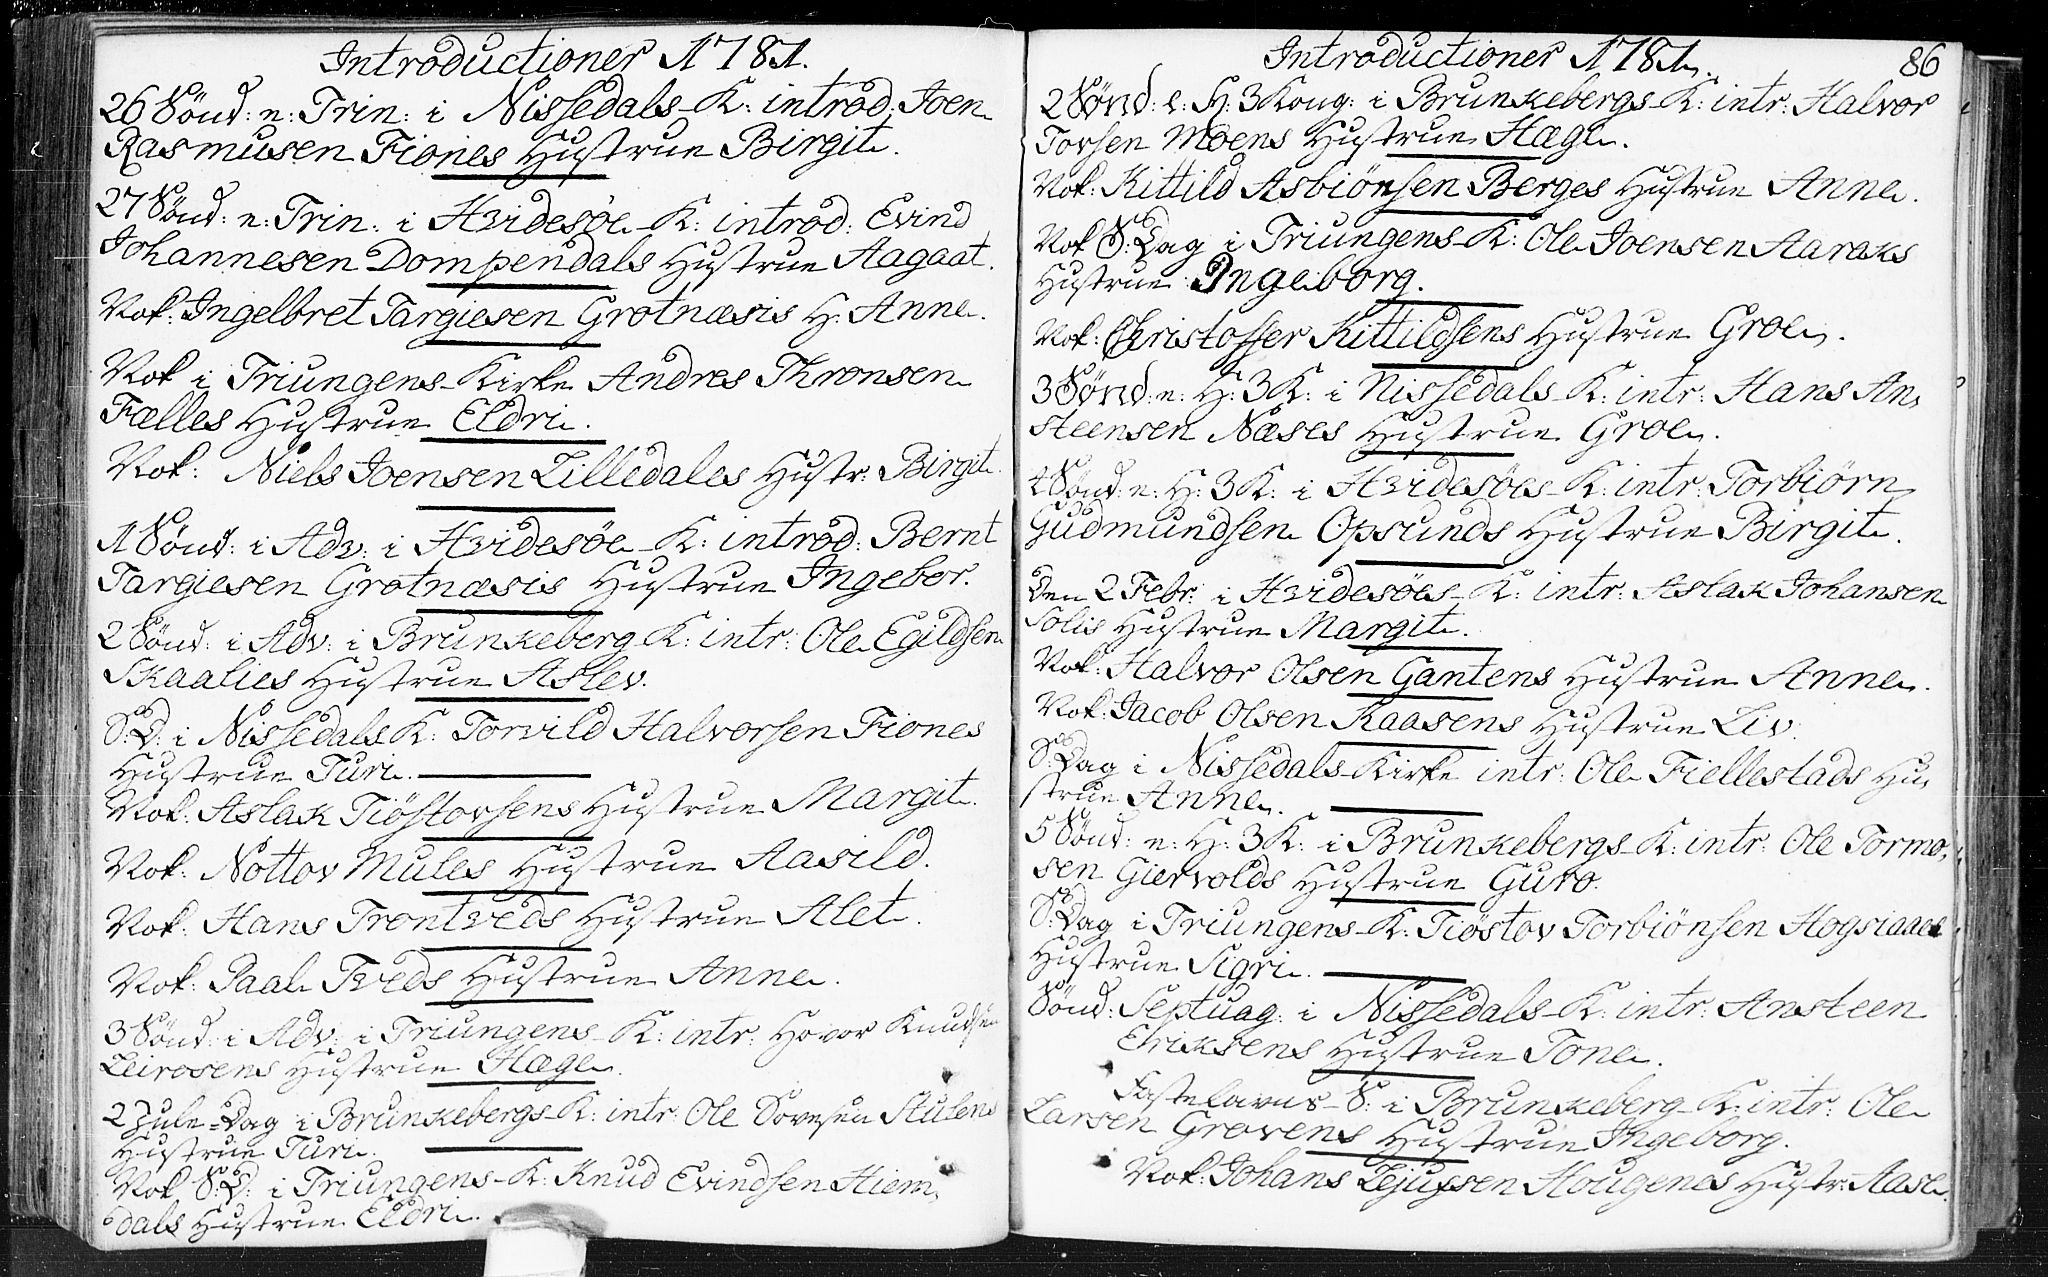 Introductioner 1781.
26 Sønd: e: Trin: i Nissedals K: introd: Joen
Rasmusen Fiones Hustrue Birgit.
27 Sønd: e: Trin: i Hvidesøe K: introd: Evind
Johannesen Dompendals Hustrue Aagaat.
Nok: Ingelbret Targiesen Grotnæsis H: Anne.
Nok i Triungens Kirke Andres Thronsen
Fælles Hustrue Eldri.
Nok: Niels Joensen Lilledales Hustr: Birgit.
1 Sønd: i Adv: i Hvidesøe K: introd: Bernt
Targiesen Grotnæsis Hustrue Ingebor.
2 Sønd: i Adv: i Brunkeberg K: intr: Ole Egildsen
Skaalies Hustrue Aslev.
S: D: i Nissedals K: Torvild Halvorsen Fiones
Hustrue Turi.
Nok: Aslak Tiøstovsens Hustrue Margit.
Nok: Nottov Mules Hustrue Aasild.
Nok: Hans Trontveds Hustrue Alet.
Nok: Paal Tveds Hustrue Anne.
3 Sønd: i Adv: i Triungens K: intr: Hovor Knudsen
Leirosens Hustrue Hæge.
2 Jule-Dag i Brunkebergs K: intr: Ole Sovesen Stulens
Hustrue Turi.
Nok S: D: i Triungens K: Knud Evindsen Hiem,
dals Hustrue Eldri.
Introductioner 1781. 86
2 Sønd: e: H: 3 Kong: i Brunkebergs K: intr: Halvor
Tovsen Moens Hustrue Hæge.
Nok: Kittild Asbiønsen Berges Hustrue Anne.
Nok S: Dag i Triungens K: Ole Joensen Aaraks
Hustrue Ingeborg.
Nok: Christoffer Kittildsens Hustrue Groe.
3 Sønd: e: H: 3 K: i Nissedals K: intr: Hans An,
steensen Næses Hustrue Groe.
4 Sønd: e: H: 3 K: i Hvidesøes K: intr: Torbiørn
Gudmundsen Opsunds Hustrue Birgit.
Den 2 Febr: i Hvidesøes K: intr: Aslak Johansen
Solis Hustrue Margit.
Nok: Halvor Olsen Gantens Hustrue Anne.
Nok: Jacob Olsen Kaasens Hustrue Liv.
S: Dag i Nissedals Kirke intr: Ole Fiellestads Hu,
strue Anne.
5 Sønd: e: H: 3 K: i Brunkebergs K: intr: Ole Tormo,
sen Giervolds Hustrue Guro.
S: Dag i Triungens K: Tiøstov Torbiønsen Hogsiaaes
Hustrue Sigri.
Sønd: Septuag: i Nissedals K: intr: Ansteen
Eriksens Hustrue Tone.
Fastelavns S: i Brunkeberg K: intr: Ole
Larsen Grovens Hustrue Ingeborg.
Nok: Johans Lejussen Hougenes Hustr: Aase.